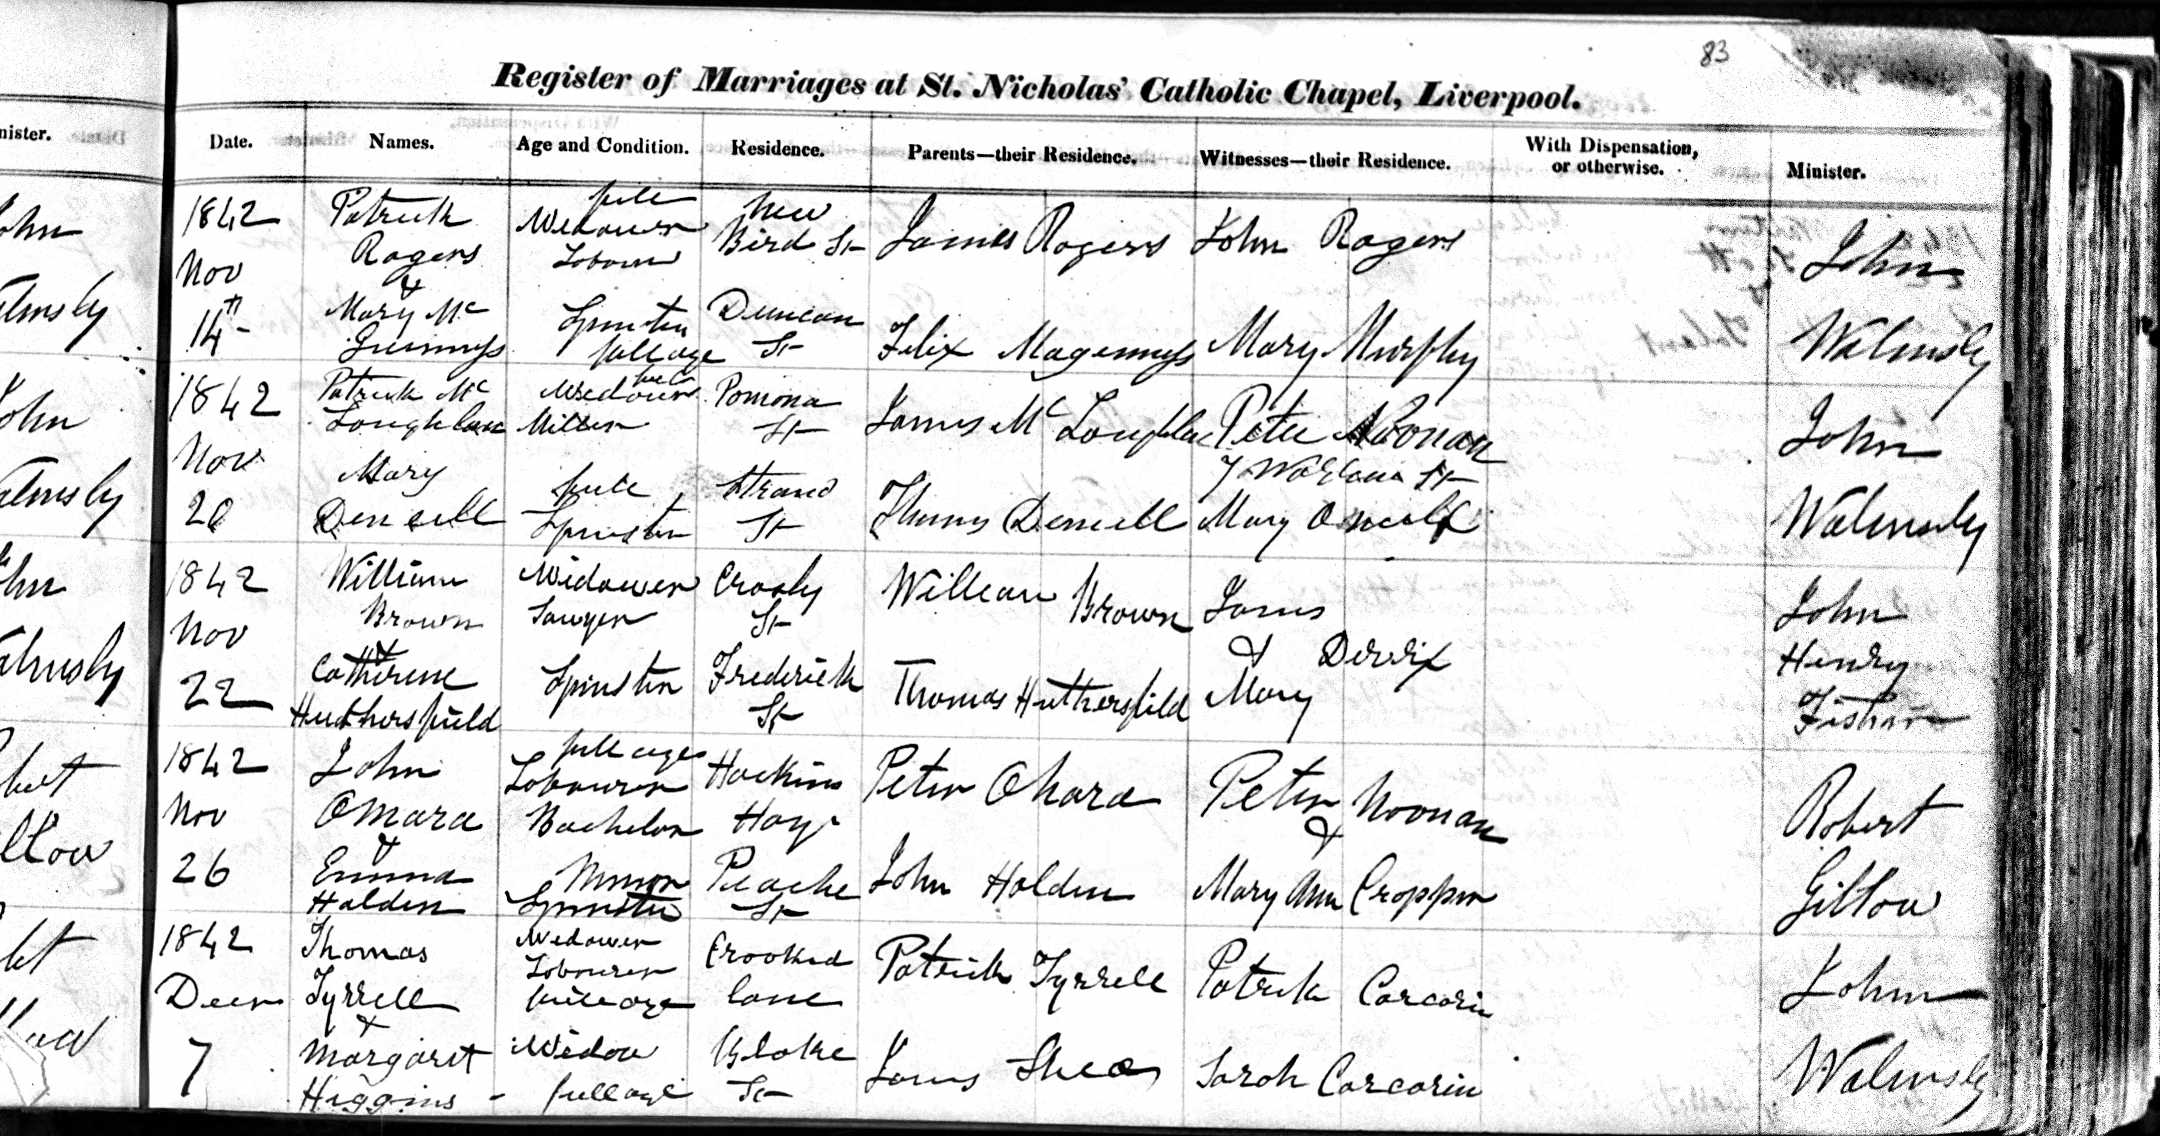 83
Register of Marriages at St. Nicholas' Catholic Chapel, Liverpool.
nister.
Date.
Names.
Age and Condition.
Residence.
Parents—their Residence.
Witnesses—their Residence.
With Dispensation,
or otherwise.
Minister.
1842
Nov
14th
Patrick
Rogers
&
Mary Mc
Guinnys
full
Widower
Labourer
Spinster
full age
New
Bird St
Duncan
St
James Rogers
Felix Magennyss
John Rogers
Mary Murphy
John
Walmsly
1842
Nov
20
Patrick Mc
Loughlan
Mary
Denvill
Widower
Miller
full
Spinster
Pomona
St
Strand
St
James Mc Loughlan
Peter Noonan
7 St
Mary Oneill
John
Walmsly
1842
Nov
22
William
Brown
&
Catherine
Huthersfield
Widower
Sawyer
Spinster
Crosby
St
Frederick
St
William Brown
Thomas Huthersfild
James
& Derrix
Mary
John
Henry
Fisher
1842
Nov
26
John
OMara
&
Emma
Holden
full age
Labourer
Bachelor
Minor
Spinster
Hackins
Hay
Peache
St
Peter Ohara
John Holden
Peter Noonan
&
Mary Ann Cropper
Robert
Gillow
1842
Decr
7
Thomas
Tyrrell
&
Margaret
Higgins
Widower
Labourer
full age
Widow
full age
Crooked
lane
Blake
St
Patrick Tyrrell
James Shea
Patrick Corcorin
Sarah Corcorin
John
Walmsly